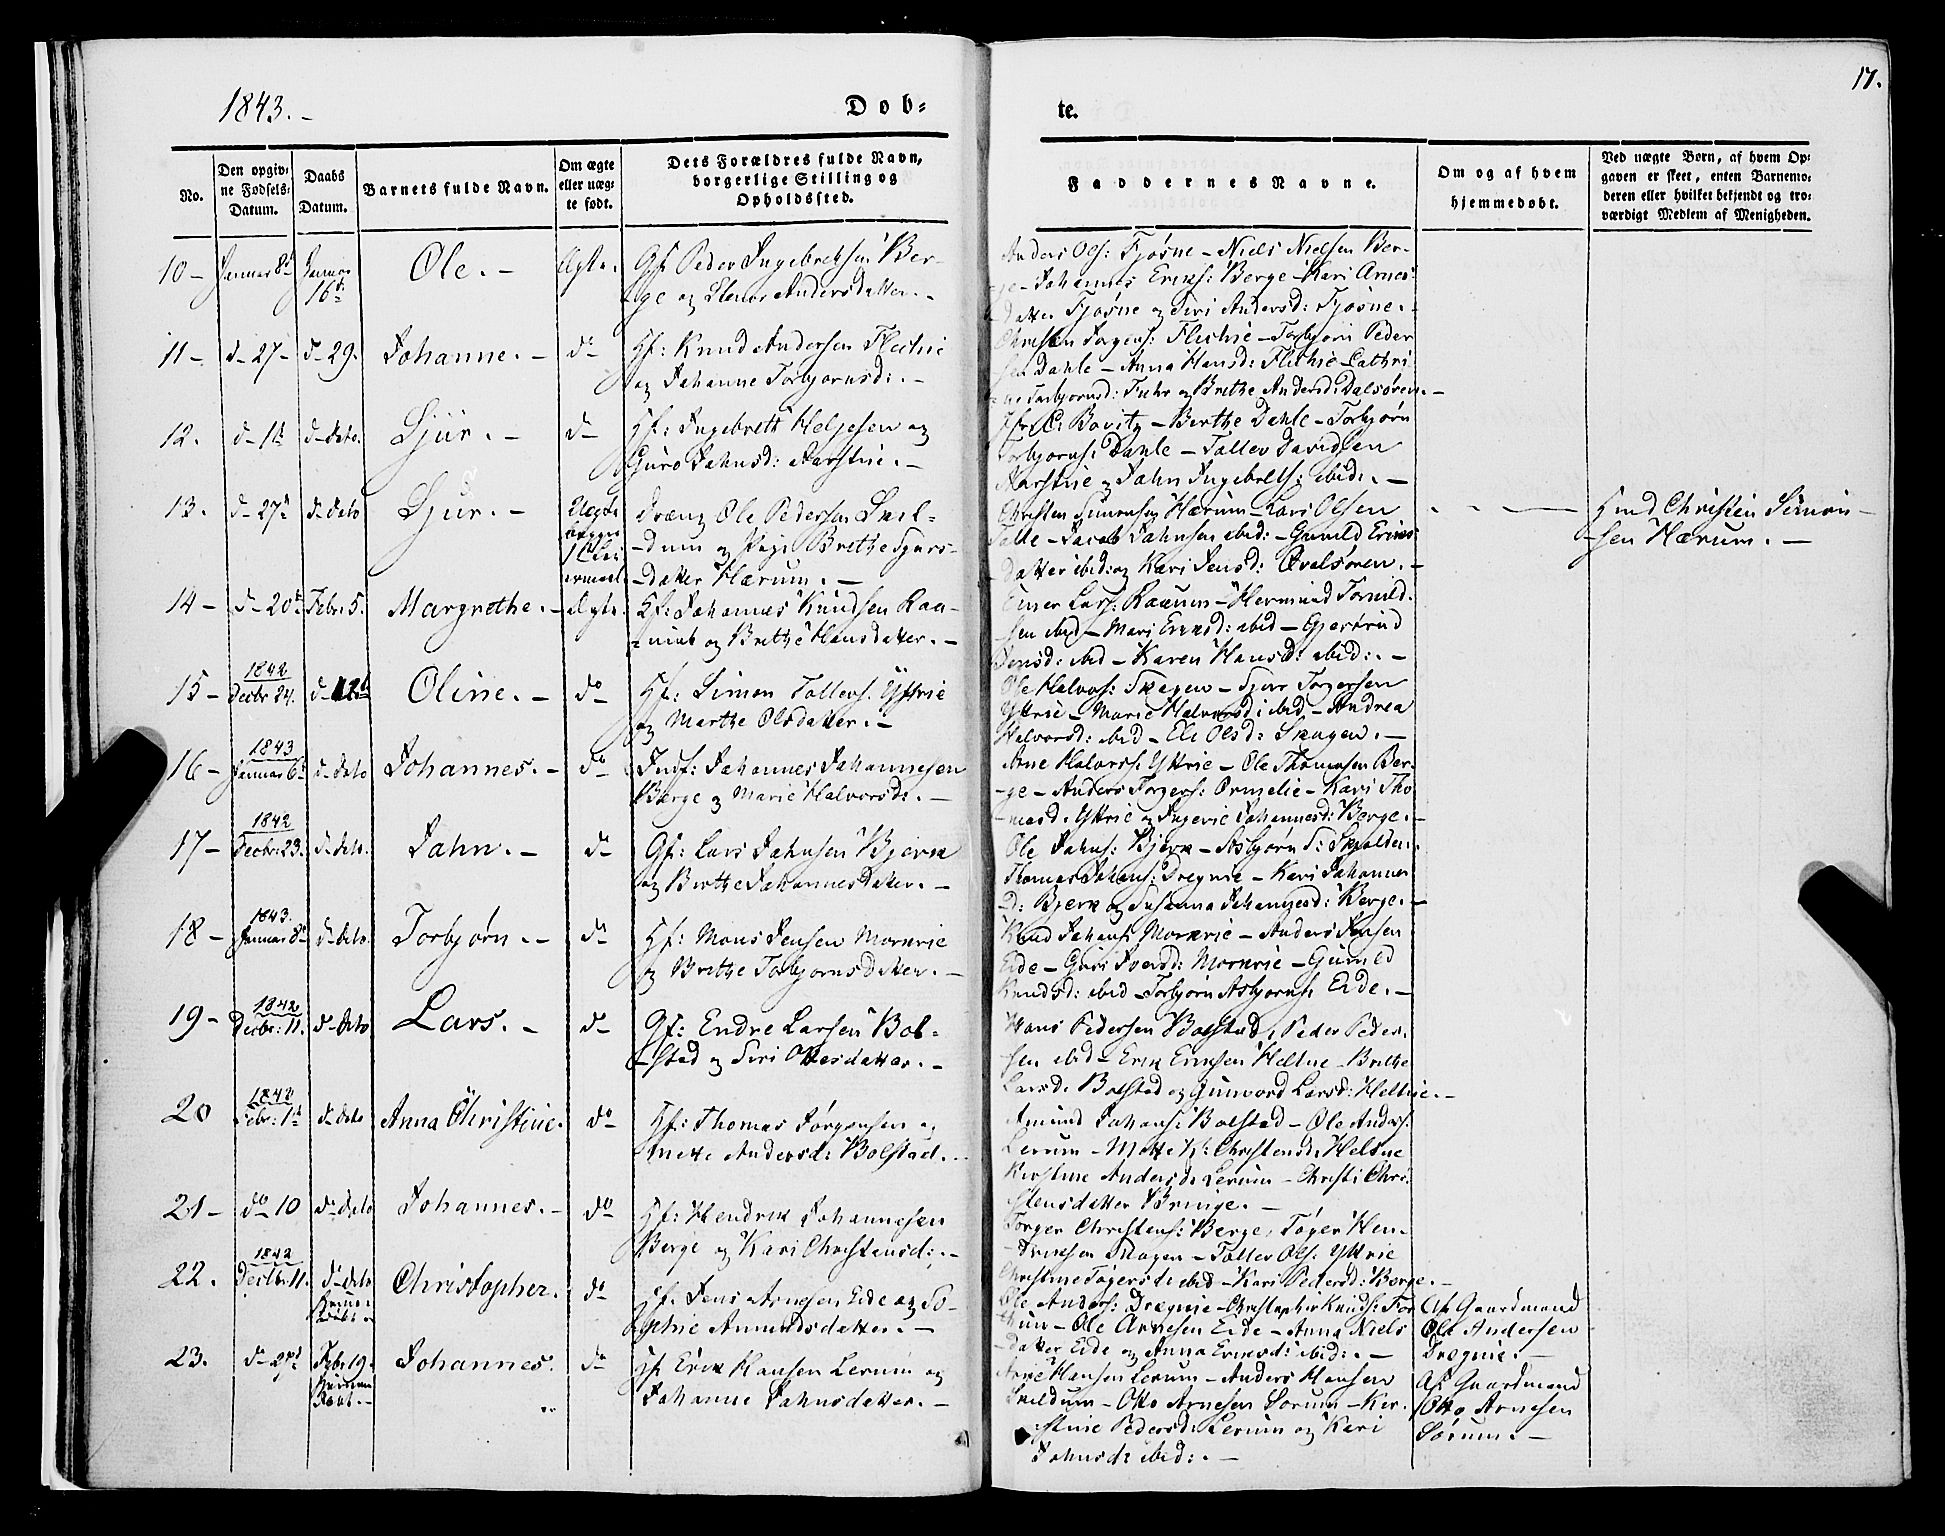 1843.-
Døb-
te.
17.
No.
Den opgiv-
ne Fødsels-
Datum.
Daabs
Datum.
Barnets fulde Navn.
Om ægte
eller uæg-
te født.
Dets Forældres fulde Navn,
borgerlige Stilling og
Opholdssted.
Faddernes Navne.
Om og af hvem
hjemmedøbt.
Ved uægte Børn, af hvem Op-
gaven er skeet, enten Barnemo-
deren eller hvilket bekjendt og tro-
værdigt Medlem af Menigheden.
10 - Januar 8de Januar 16de Ole. - Ægte. Gf. Peder Ingebrektsen Ber-
ge og Andersdatter. -
Anders Ols: Fjøsne - Niels Nielsen Ber-
ge - Johannes Eriks: Berge - Kari Arnes-
datter Fjøsne og Siri Andersd: Fjøsne. -
11 - d- 27- d- 29. Johanne. - do Hf: Knud Andersen Flechie
og Johanne Torbjørnsd: -
Christen Jørgens: Flechie - Torbjørn Peder
sen Dahle - Anna Hansd: Flechie - Cathri
ne Torbjørnsd: Fuhr og Brethe Andersd: Dalsøren. -
12. d- 1te d- dito. Sjur. - do Hf: Ingebret Heljesen og
Guro Jahnsd: Aarstrie. -
Bovitz - Berthe Dahle - Torbjørn
Torbjørns: Dahle - Tollev Davidsen
Aarstrie og Jahn Ingebrets: ibid: -
13. d- 27de d- dito Sjur. - Uægte
Dreng Ole Pedersen Svel-
dum og Pige Brethe Sjurs-
datter Hærum. -
Christen Simonsen Hærum - Lars Olsen
- Jacob Jahnsen ibid: - Gunild Eriks
datter ibid: og Kari Jensd: Qvalsøren. -
Hmd Christen Simon-
sen Hærum. -
14 - d- 20de Febr: 5. Margrethe. - Ægte. Hf: Johannes Knudsen Raa-
um og Brethe Hansdatter. -
Lars: Raaum - Hermund
sen ibid - Mari Eriksd: ibid - Gjertrud
Jensd: ibid - Karen Hansd: ibid: -
15 - 1842 Decbr 24. d- 12te Oline. - do Hf: Simon Tollevs: Yttrie
og Marthe Olsdatter. -
Ole Halvors: Skagen - Sjur Torgersen
Yttrie - Marie Halvorsd: ibid - Andrea
Halvorsd: ibid - Eli Olsd: Skagen. -
16 - 1843 Januar 6te d- dito Johannes. - do Indf: Johannes Johannesen
Berge og Marie Halvorsd: -
Arne Halvors: Yttrie - Ole Thomesen Ber-
ge - Anders Torgers: Ormelie - Kari Tho
masd. Yttrie og Ingerie Johannesd: Berge. -
17 - 1842 Decbr: 23. d- dito. Jahn. - do Gf: Lars Jahnsen Bjerk
og Berthe Johannesdatter. -
Ole Jahns: Bjerk - Asbjørn S: Skjolden.
Thomas Johans: Drægnie - Kari Johannes
D: Bjerk og Susanna Johannesd: Berge. -
18 - 1843. Januar 8de d- dito. Torbjørn. - do Hf: Mons Jensen Morkrie
og Brethe Torbjørnsdatter. -
Knud Johans: Morkrie - Anders Jensen
Eide - Guri Iversd: Morkrie - Gunild
Knudsd: ibid - Torbjørn Asbjørns: Eide. -
19 - 1842 Decbr: 11. d- dito Lars. - do Gf: Endre Larsen Bol-
stad og Siri Ottesdatter. -
Hans Pedersen Bolstad, Peder Peder-
sen ibid - Erik Eriksen Heltne - Brethe
Larsd: Bolstad og Gunvord Larsd: Heltne. -
20 Febr: 1te d- dito Anna Christine. do Hf: Thomas Jørgensen og
Anette Andersd: Bolstad. -
Amund Johans: Bolstad - Ole Anders:
Lerum - Mette K: Christensd: Heltne
Kirstine Andersd: Lerum - Christi Chri-
stensdatter Bringe. -
21 - do 10 d- dito Johannes. - do Hf: Hendrik Johannesen
Berge og Kari Christensd: -
Torger Christens: Berge, Tøger Hen-
driksen Skagen - Tollev Ols: Yttrie
Christine Tøgersd: ibid - Kari Pedersd: Berge. -
22. 1842 Decbr: 11. d- dito Christopher. do Hf. Jens Arnesen Eide og So-
phie Amundsdatter. -
Ole Anders: Drægnie - Christopher Knuds: For
thun - Ole Arnesen Eide - Anna Niels
datter Eide og Anna Eriksd: ibid: -
Af Gaardmand
Ole Andersen
Drægnie. -
23. d- 27de Febr 19. Johannes. do Hf Erik Hansen Lerum og
Johanne Jahnsdatter. -
Arne Hansen Lerum - Anders Hansen
Sveldum - Otto Arnesen Sørum - Kir-
stine Pedersd: Lerum og Kari
Jahnsd: ibid: -
Af Gaardmand
Otto Arnesen
Sørum. -